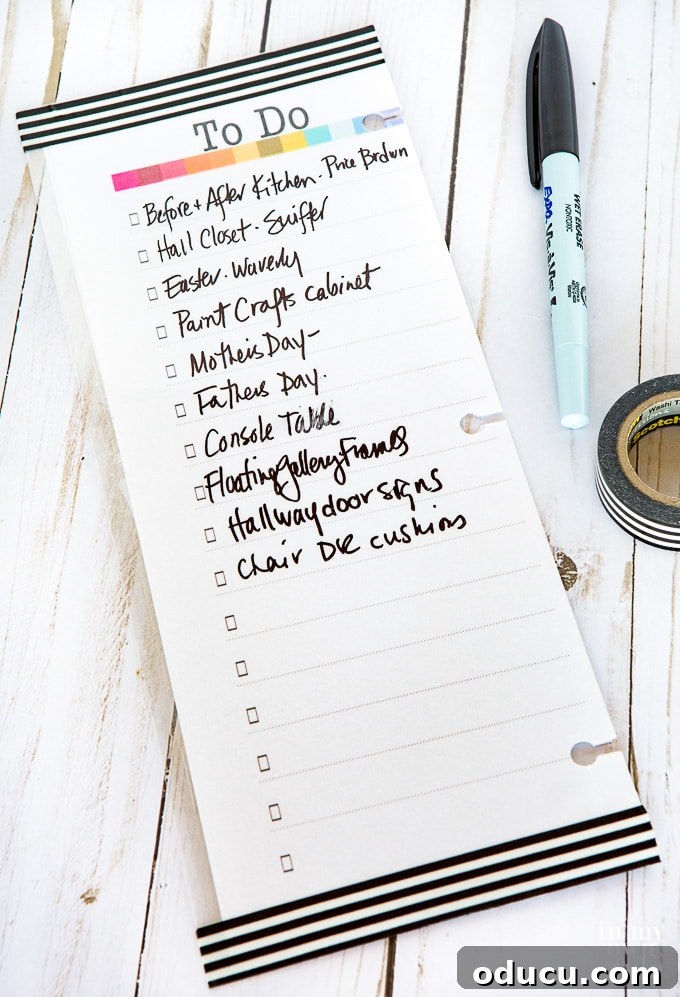 To Do
Before + After Kitchen - Price Brown
Hall Closet - Swiffer
Easter - Waverly
Paint Crafts cabinet
Mother's Day -
Fathers Day.
Console Table
Floating Gallery Frames
Hallway door signs
Chair DR cushions
WET ERASE
NONTOXIC
EXPO Vis-à-Vis
Washi T
Scotch
in my
oducu.com